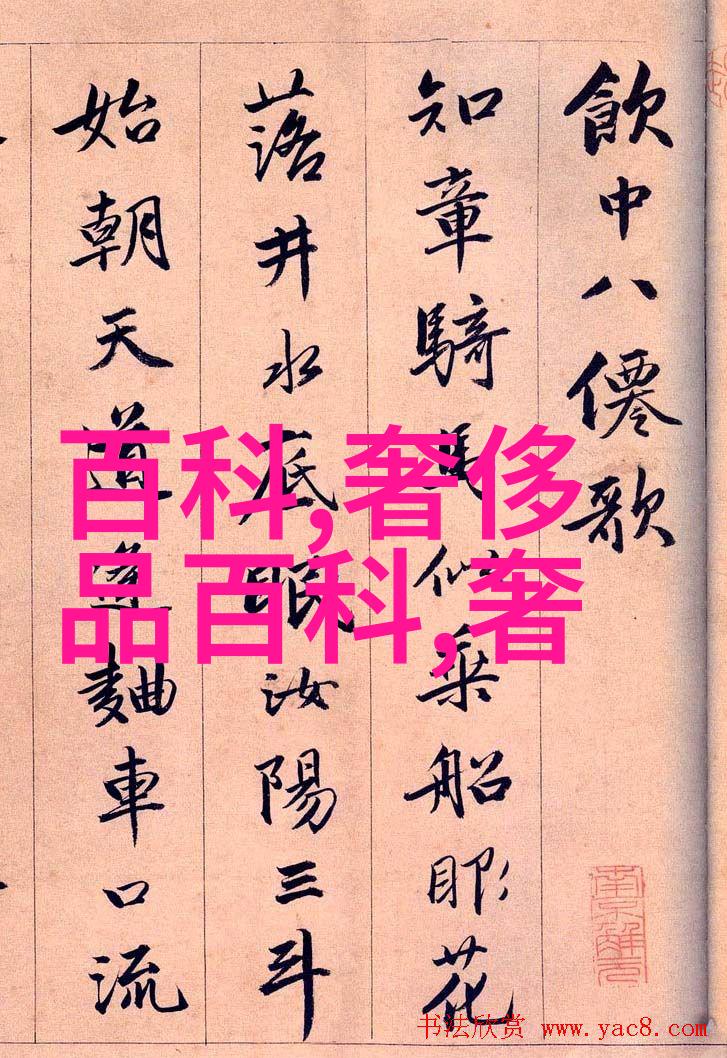 飲中八僊歌
知章騎馬似乘船眼花
落井水底眠汝陽三斗
始朝天道逢麯車口流
南京解元
百科,奢侈
品百科,奢
书法欣赏 www.yac8.com